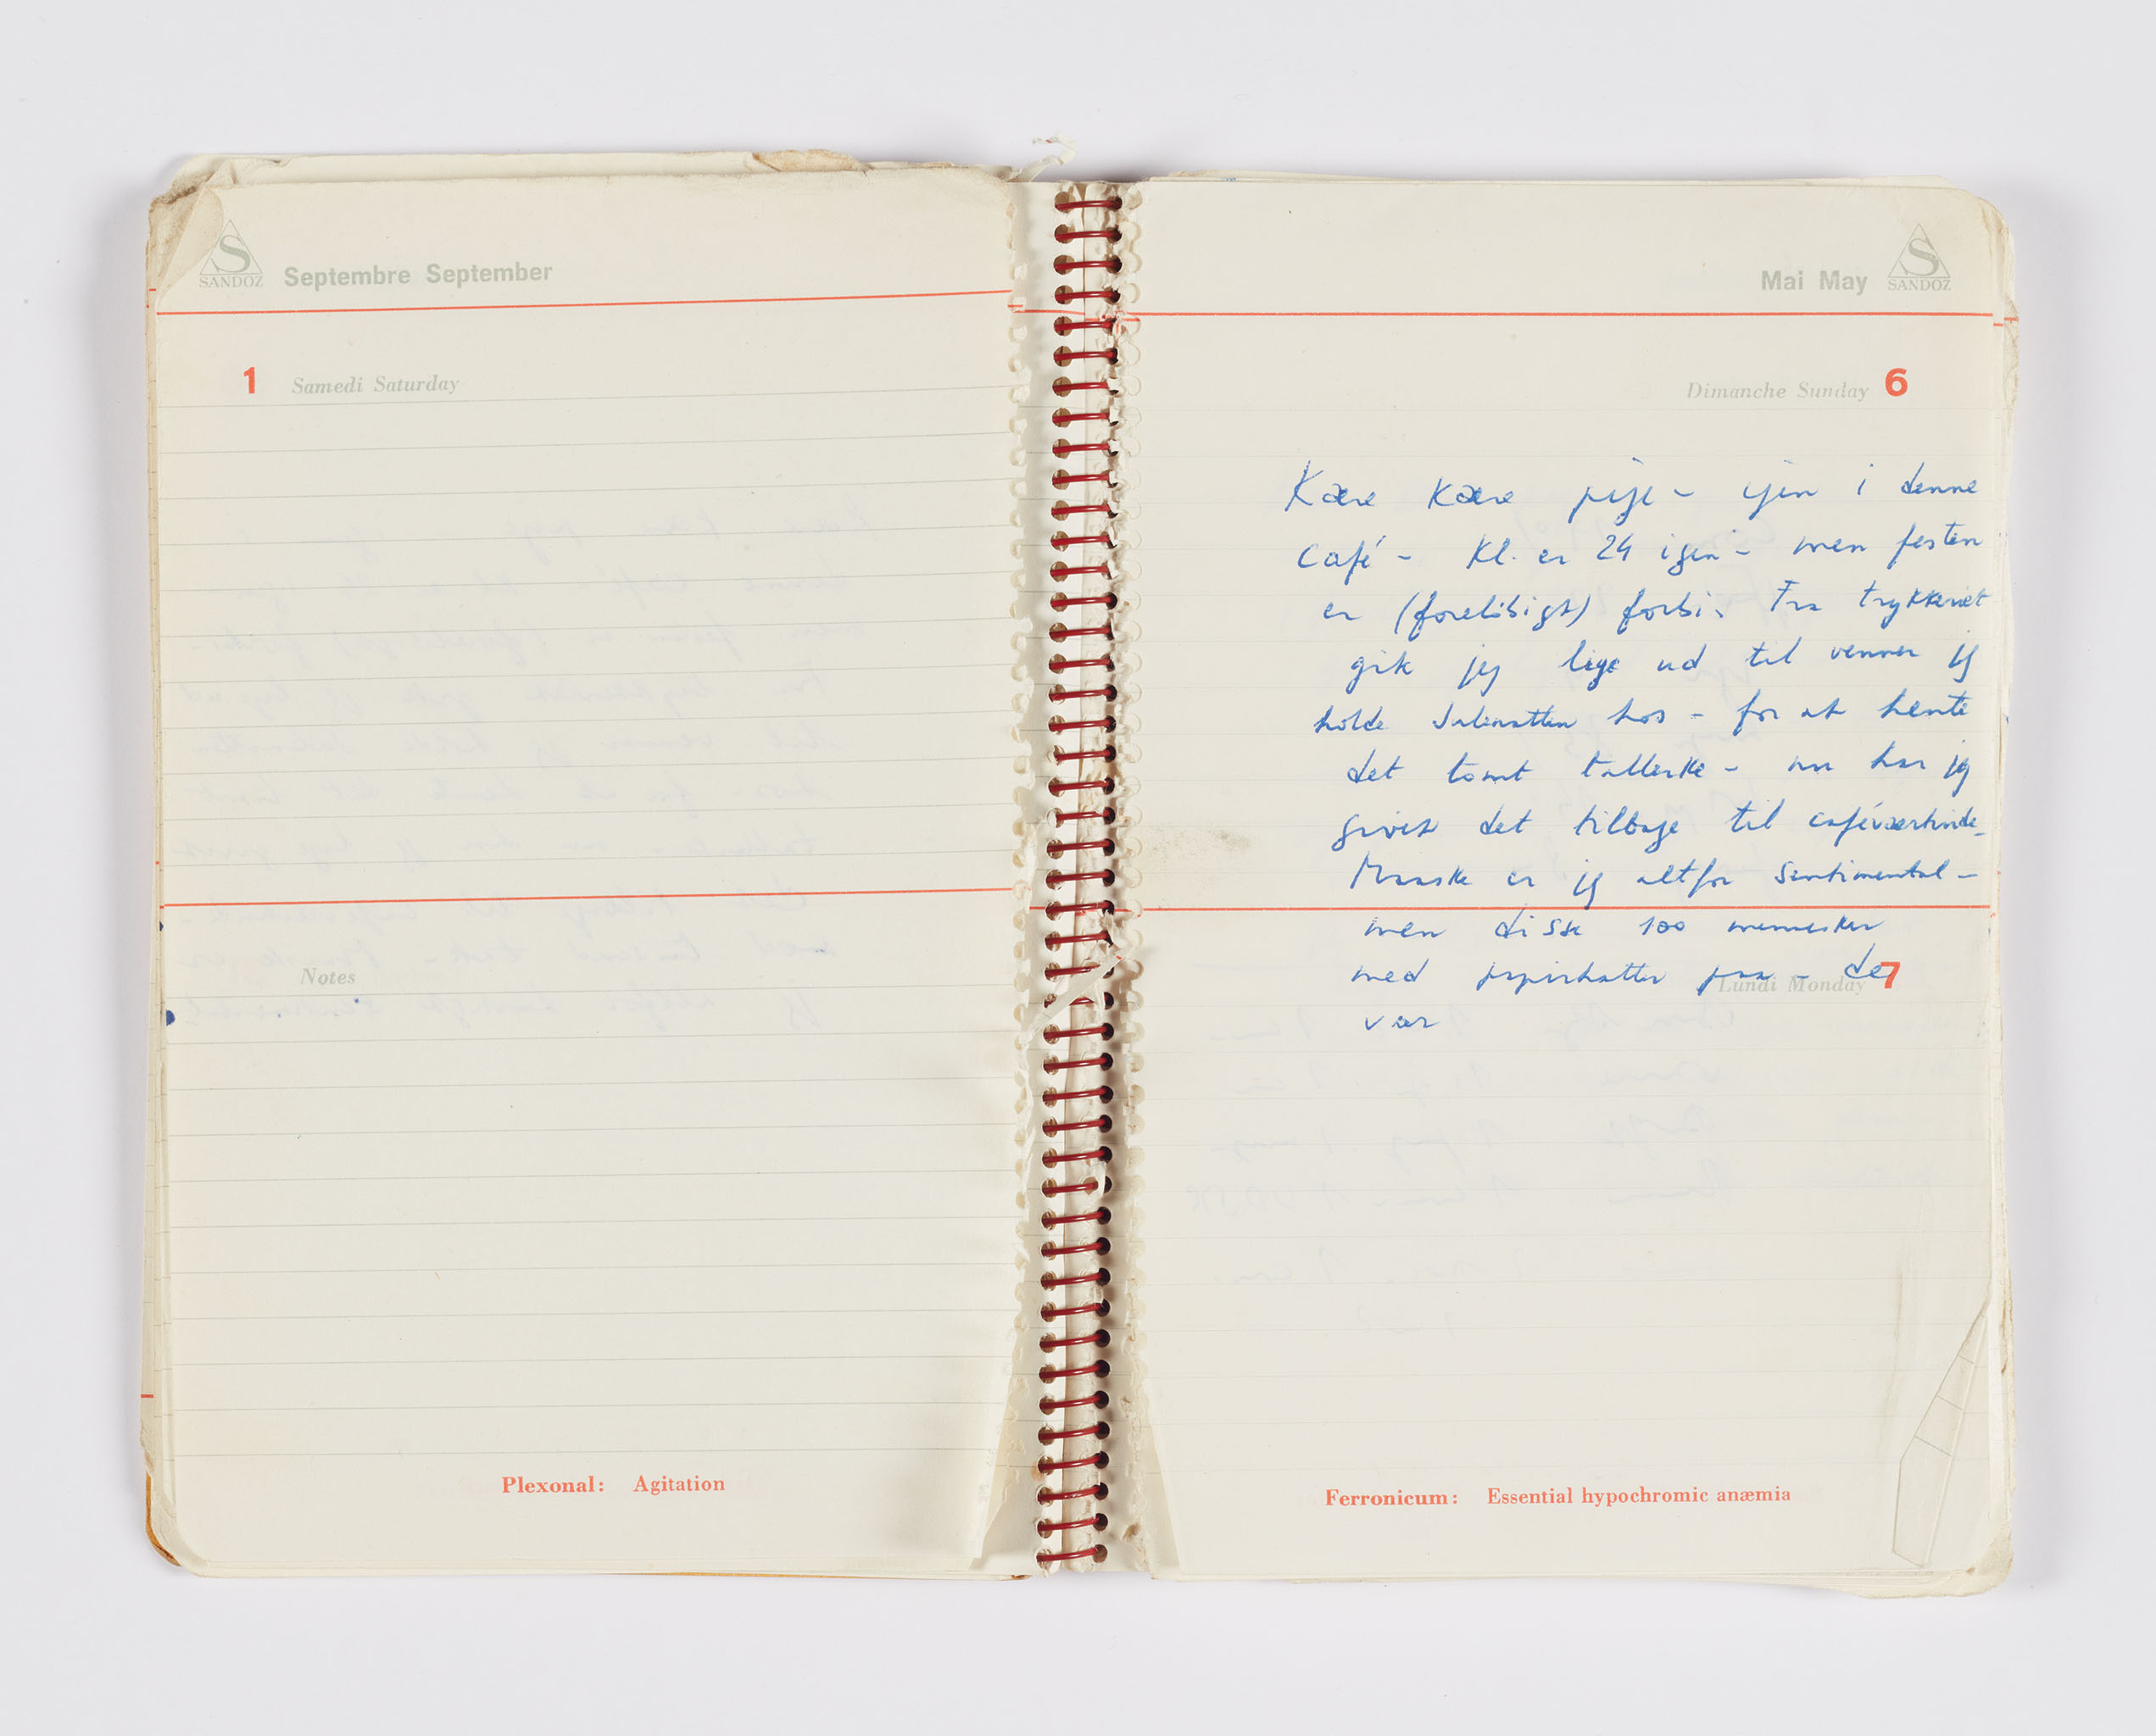 S
SANDOZ
Septembre September
1 Samedi Saturday
Notes
Plexonal: Agitation
Mai May
S
SANDOZ
Dimanche Sunday 6
Kære Kære pige - igen i denne
café - Kl. er 24 igen - men festen
er (foreløbigt) forbi. Fra trykkeriet
gik jeg lige ud til venner jeg
holdt Julenatten hos - for at hente
det tomt tallerke - nu har jeg
givet det tilbage til caféværtinde -
Maaske er jeg altfor sentimental -
men disse 100 mennesker
med papirhatter paa - de
var
Lundi Monday 7
Ferronicum: Essential hypochromic anæmia